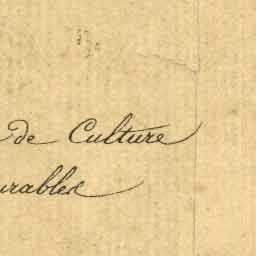 de Culture
urables